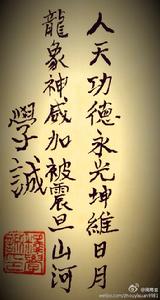 人天功德永光坤維日月
龍象神威加被震旦山河
學誠
weibo.com/zhouyixuan1981